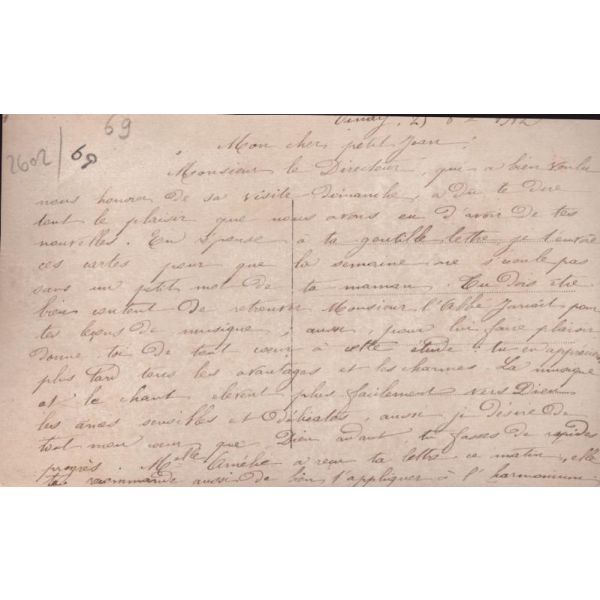 69
2602/69
Mon cher petit Jean,
Monsieur le Directeur, qui a bien voulu
nous honorer de sa visite dimanche, a dû te dire
tout le plaisir que nous avons eu d'avoir de tes
nouvelles. En réponse à ta gentille lettre, je t'envoie
ces cartes pour que la semaine ne s'écoule pas
sans un petit mot de ta maman. Tu dois être
bien content de retrouver Monsieur l'Abbé pour
tes leçons de musique, aussi, pour lui faire plaisir
donne toi de tout cœur à cette étude : tu en apprécieras
plus tard tous les avantages et les charmes. La musique
et le chant élèvent plus facilement vers Dieu
les âmes sensibles et délicates, aussi je désire de
tout mon cœur que Dieu aidant tu fasses de rapides
progrès. Melle Amélie a reçu ta lettre ce matin, elle
te recommande aussi de bien t'appliquer à l'harmonium